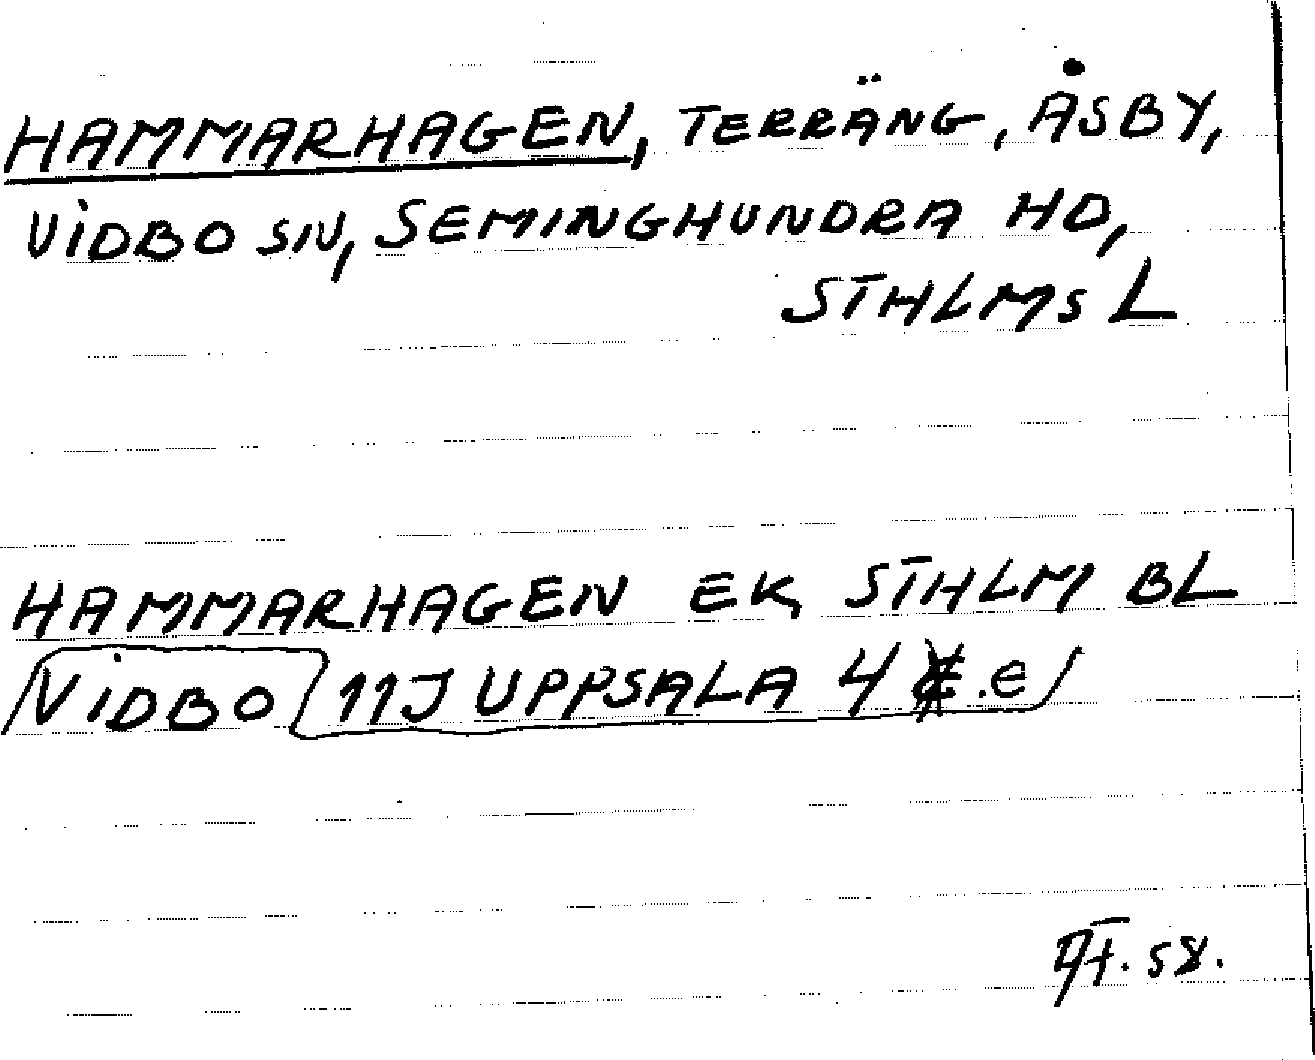 HAMMARHAGEN, TERRÄNG, ÅSBY,
VIDBO SN, SEMINGHUNDRA HD,
STHLMS L
HAMMARHAGEN EK, STHLM BL
VIDBO 11J UPPSALA 4 .e
58.